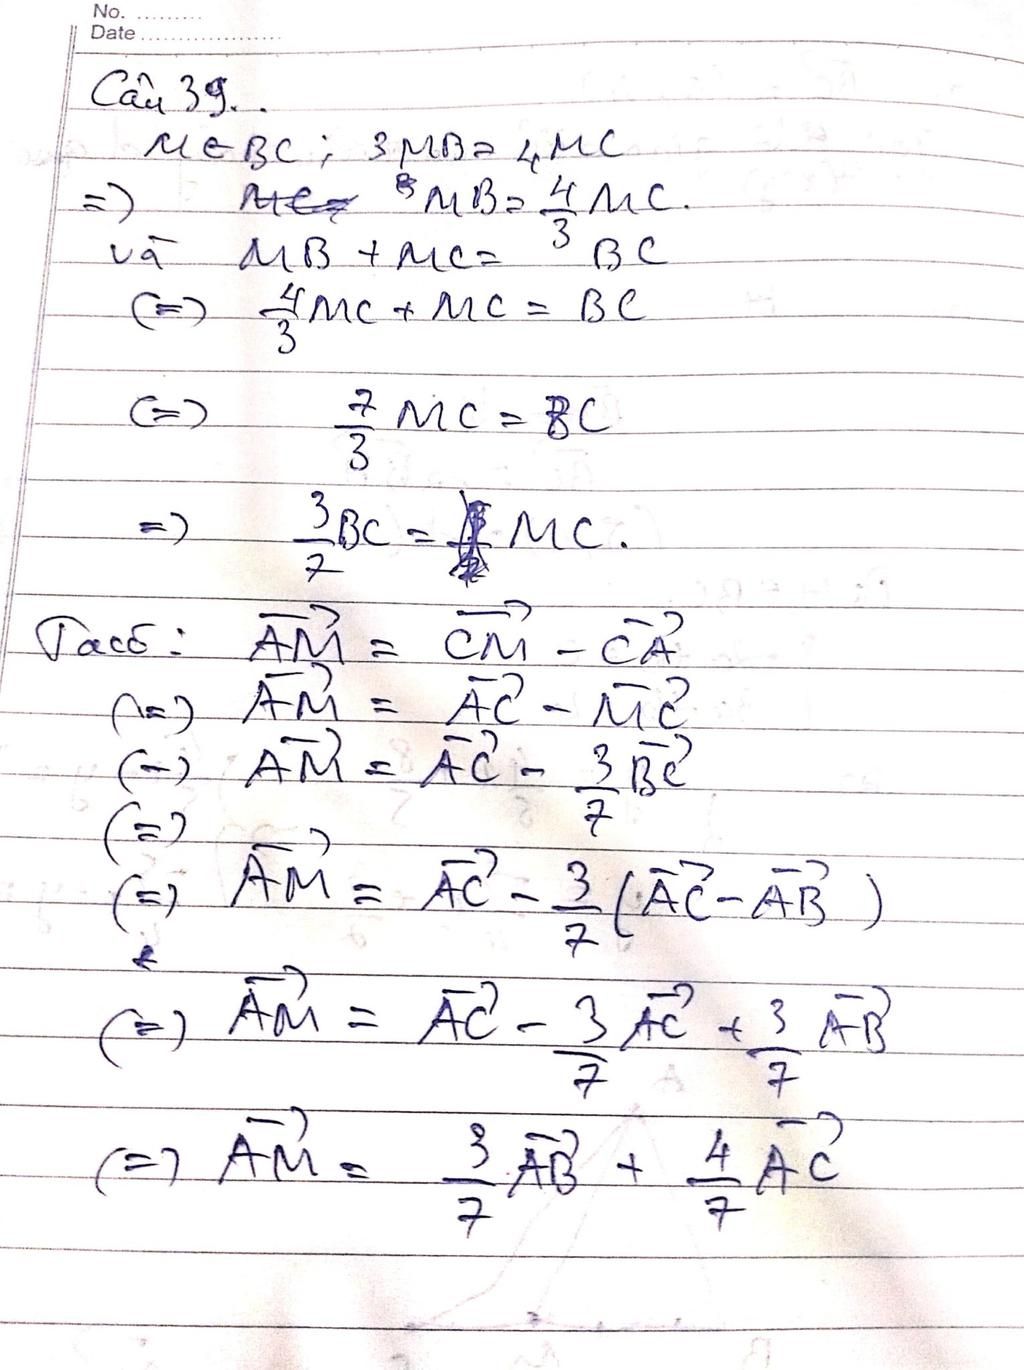 No. .........
Date ..................
Câu 39...
M ∈ BC ; 3MB = 4MC
=) MB = 4/3 MC.
và MB + MC = BC
(=) 4/3 MC + MC = BC
(=) 7/3 MC = BC
=) 3/7 BC = MC.
Ta có : \overrightarrow{AM} = \overrightarrow{CM} - \overrightarrow{CA}
(=) \overrightarrow{AM} = \overrightarrow{AC} - \overrightarrow{MC}
(=) \overrightarrow{AM} = \overrightarrow{AC} - 3/7 \overrightarrow{BC}
(=)
(=) \overrightarrow{AM} = \overrightarrow{AC} - 3/7 (\overrightarrow{AC} - \overrightarrow{AB})
(=) \overrightarrow{AM} = \overrightarrow{AC} - 3/7 \overrightarrow{AC} + 3/7 \overrightarrow{AB}
(=) \overrightarrow{AM} = 3/7 \overrightarrow{AB} + 4/7 \overrightarrow{AC}